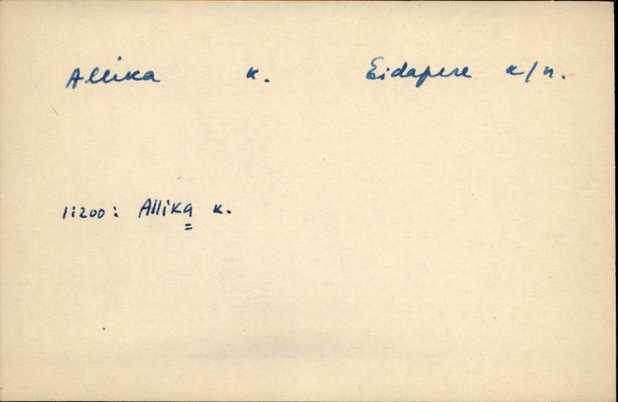 Allika k. Eidapere k/n.
1:200: Allika k.